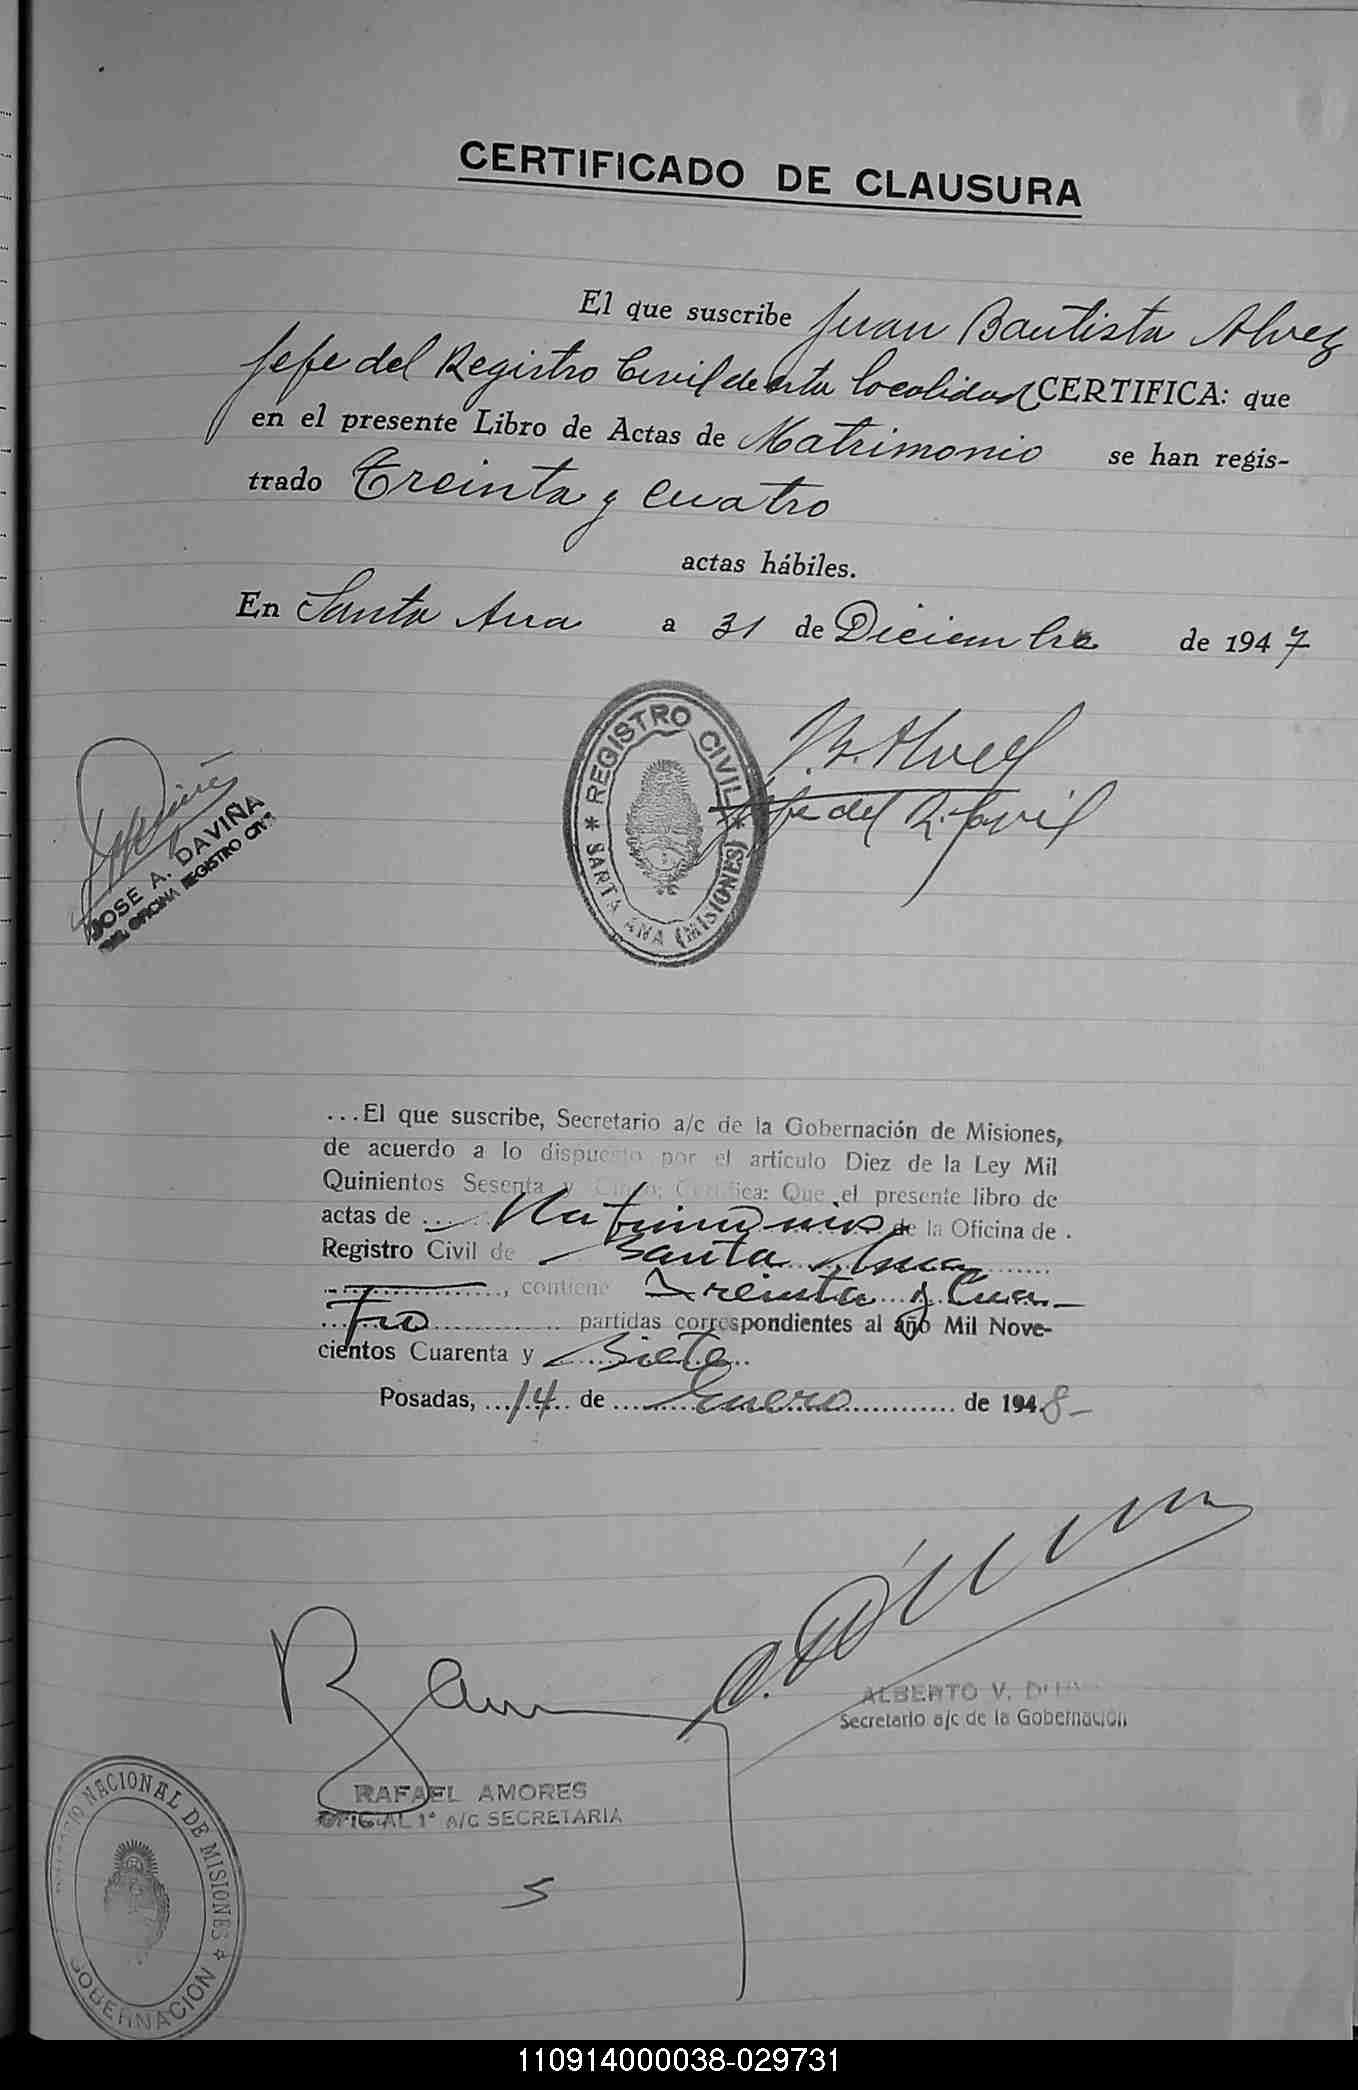 CERTIFICADO DE CLAUSURA
El que suscribe Juan Bautista Alvez
Jefe del Registro Civil de esta localidad CERTIFICA: que
en el presente Libro de Actas de Matrimonio se han regis-
trado Treinta y Cuatro
actas hábiles.
En Santa Ana a 31 de Diciembre de 1947
J. B. Alvez
Jefe del R. Civil
* REGISTRO CIVIL *
SANTA ANA (MISIONES)
JOSE A. DAVIÑA
OFICINA REGISTRO CIVIL
...El que suscribe, Secretario a/c de la Gobernación de Misiones,
de acuerdo a lo dispuesto por el artículo Diez de la Ley Mil
Quinientos Sesenta y Cinco; Certifica: Que el presente libro de
actas de Matrimonios de la Oficina de
Registro Civil de Santa Ana
contiene Treinta y Cua-
tro partidas correspondientes al año Mil Nove-
cientos Cuarenta y Siete
Posadas, 14 de Enero de 1948-
ALBERTO V.
Secretario a/c de la Gobernación
RAFAEL AMORES
OFICIAL 1º A/C SECRETARIA
NACIONAL DE MISIONES *
GOBERNACION
110914000038-029731